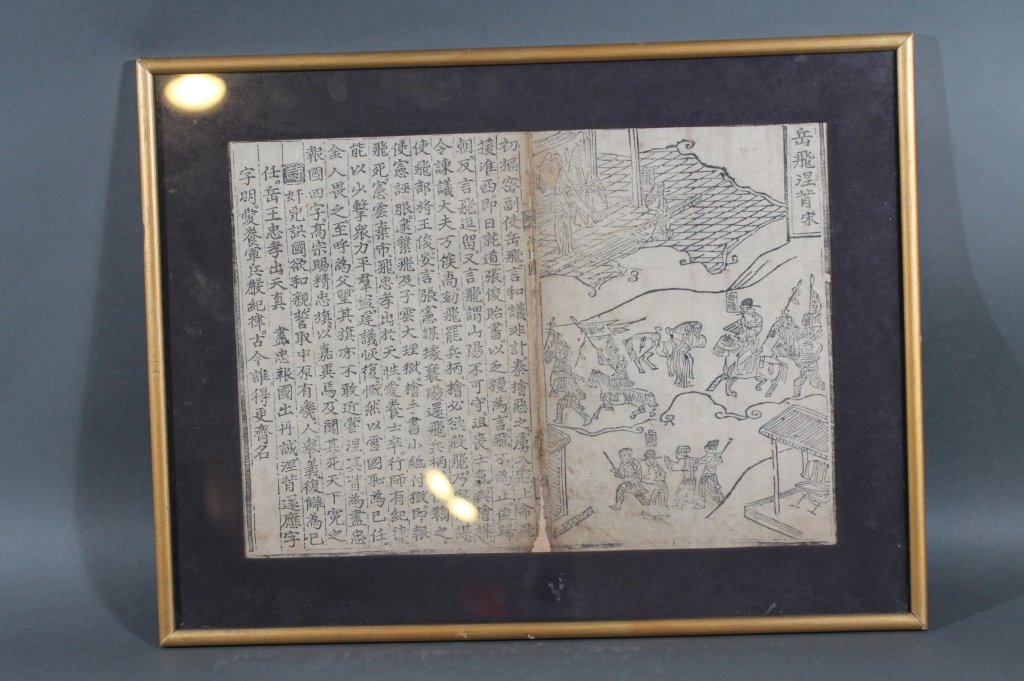 岳飛涅背 宋
初樞密副使岳飛言和議非計秦檜惡之虜人
上命飛
援淮西即日就道張俊貽書以乏糧為言飛不為止
朝反言飛逗留又言飛謂山陽不可守沮喪士氣與檜謀
令諫議大夫万俟卨劾飛罷兵柄檜必欲殺飛乃
謀
使飛部將王俊妄言張憲謀據襄陽還飛兵柄
鞫之
使憲誣服遂繫飛及子雲大理獄檜手書小紙付獄即報
飛死憲雲棄市飛忠孝出於天性愛養士卒行師有紀律
能以少擊衆力平羣寇建議恢復慨然以雪國恥為己任
金人畏之至呼為父望其旗亦不敢近營涅其背為盡忠
報國四字高宗賜精忠旗以嘉異焉及聞其死天下寃之
詩 奸兇誤國欲和親誓取中原有幾人擧義復讎為己
任岳王忠孝出天真 盡忠報國出丹誠涅背遂應字
字明愛養軍兵嚴紀律古今誰得更齊名
3